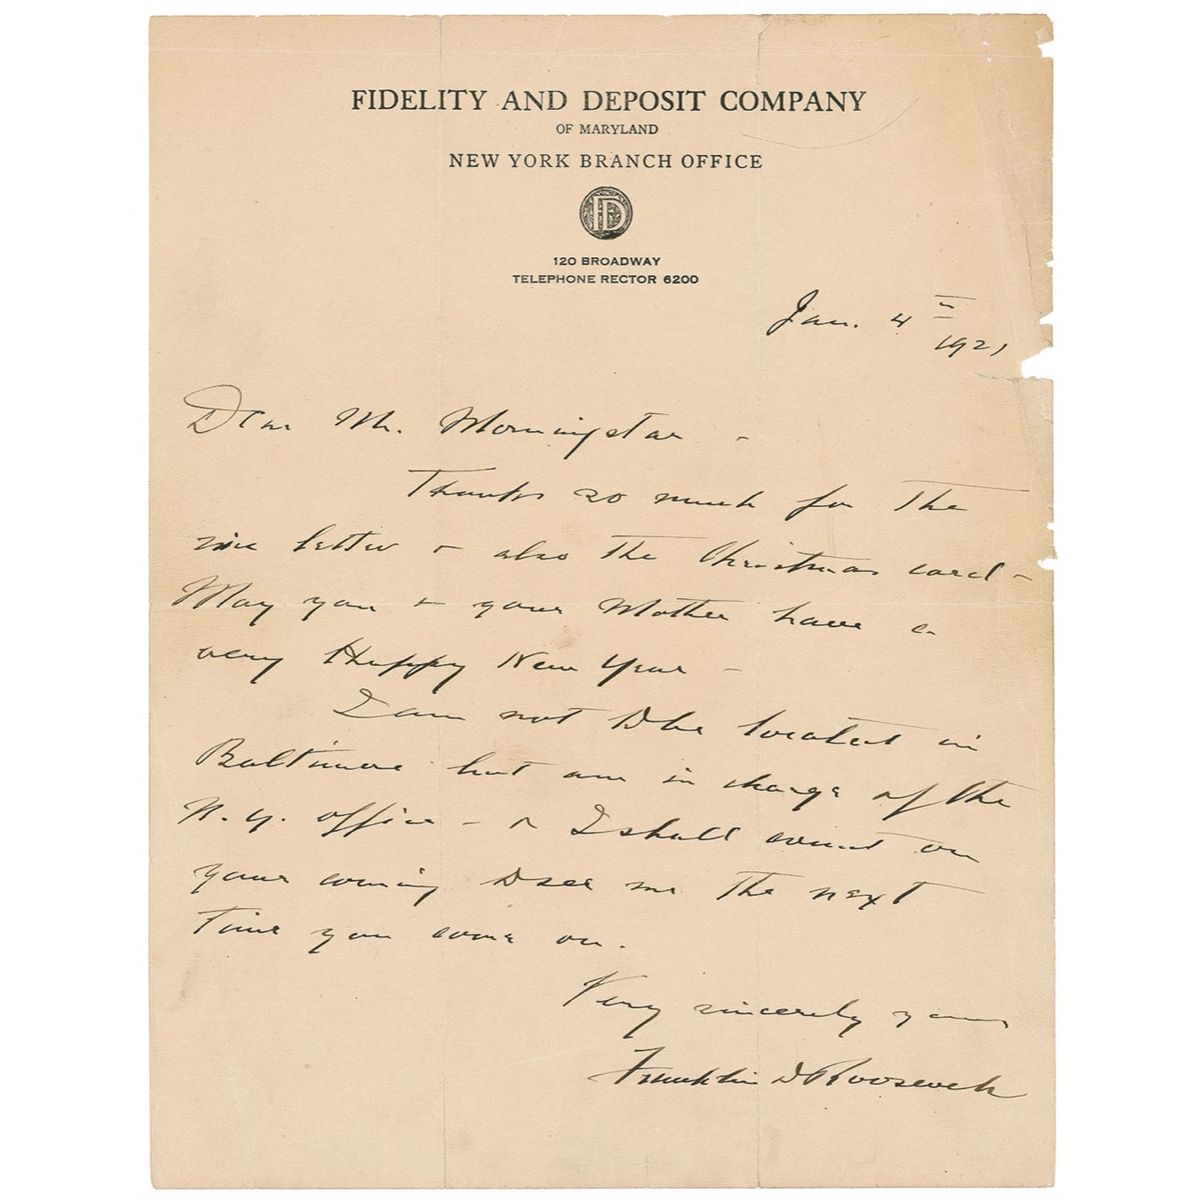 FIDELITY AND DEPOSIT COMPANY
OF MARYLAND
NEW YORK BRANCH OFFICE
FD
120 BROADWAY
TELEPHONE RECTOR 6200
Jan. 4th
1921
Dear Mr. Morningstar -
Thanks so much for the
nice letter & also the Christmas card -
May you & your Mother have a
very Happy New Year -
I am not to be located in
Baltimore but am in charge of the
N. Y. office - & I shall count on
your coming to see me the next
time you come on.
Very sincerely yours
Franklin D Roosevelt